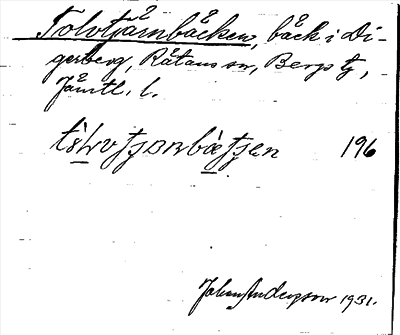 Tolvtjärnbäcken, bäck i Di-
gerberg, Rätans sn, Bergs tg,
Jämtl. l.
196
Johan Anderson 1931.